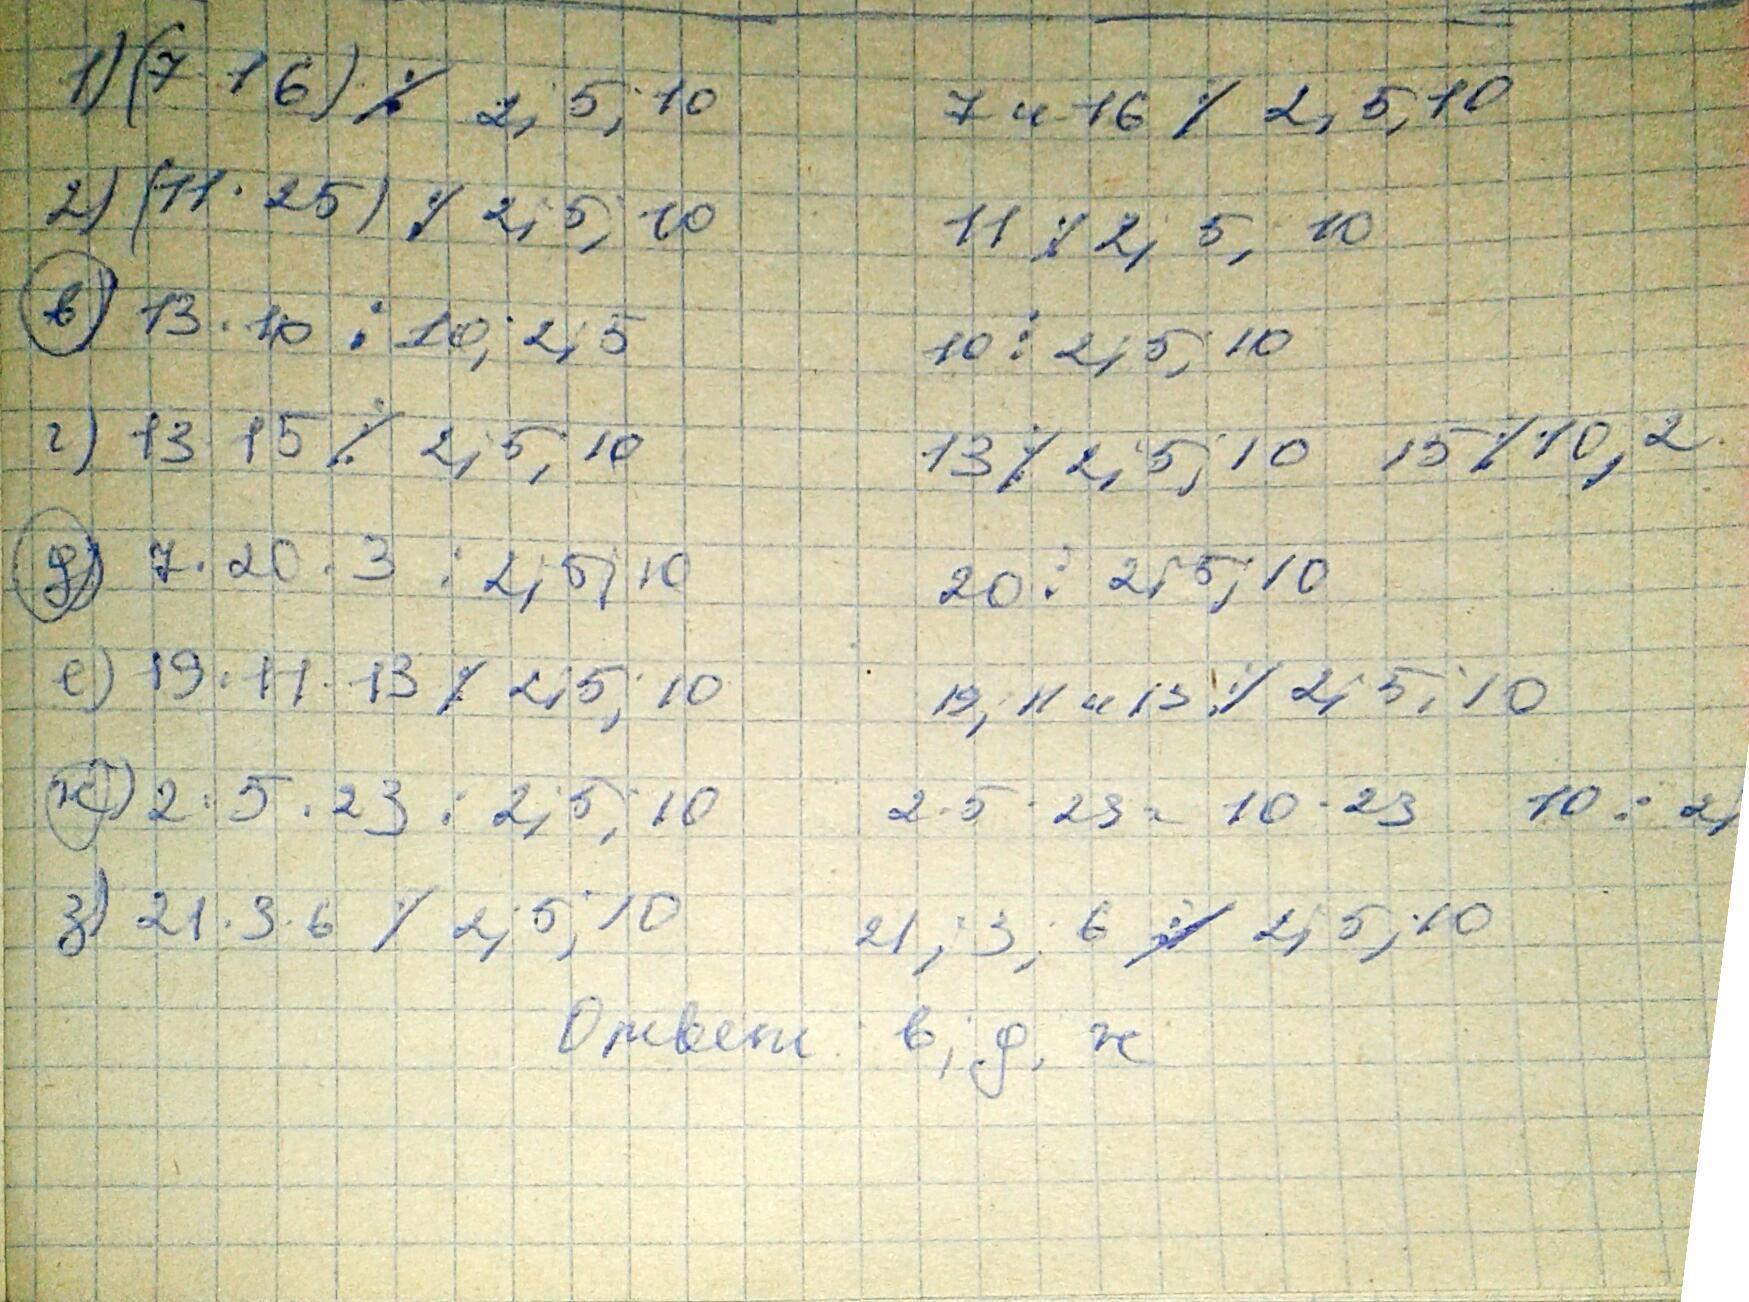 1) (7 · 16) ⋮̸ 2; 5; 10 7 и 16 ⋮̸ 2, 5, 10
2) (11 · 25) ⋮̸ 2; 5; 10 11 ⋮̸ 2; 5, 10
в) 13 · 10 ⋮ 10; 2; 5 10 ⋮ 2; 5; 10
г) 13 · 15 ⋮̸ 2; 5; 10 13 ⋮̸ 2; 5; 10 15 ⋮̸ 10, 2
д) 7 · 20 · 3 ⋮ 2; 5; 10 20 ⋮ 2; 5; 10
е) 19 · 11 · 13 ⋮̸ 2; 5; 10 19, 11 и 13 ⋮̸ 2; 5; 10
ж) 2 · 5 · 23 ⋮ 2; 5; 10 2 · 5 · 23 = 10 · 23 10 ⋮ 2;
з) 21 · 3 · 6 ⋮̸ 2; 5; 10 21; 3; 6 ⋮̸ 2; 5; 10
Ответ: в; д; ж